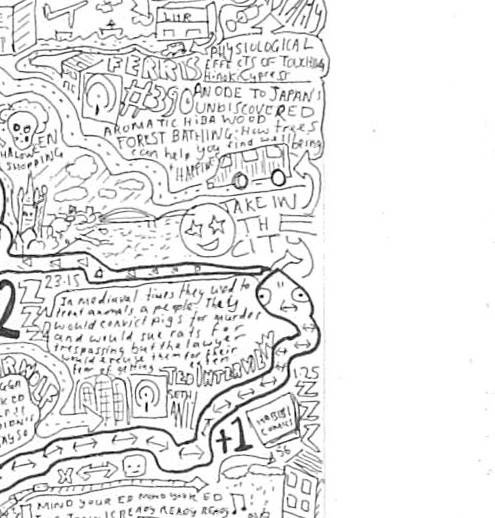 LHR
PHYSIOLOGICAL
EFFECTS OF TOUCHING
Hinoki Cypress
FERRIS
#390
AN ODE TO JAPAN'S
UNDISCOVERED
AROMATIC HIBA WOOD
FOREST BATHING: How trees
can help you find well being
+ HAPPINESS
SHOPPING
TAKE IN
TH
CITY
23-15
2
In mediaval times they used to
treat animals a people. They
would convict pigs for murder
and would sue rats for
trespassing but the lawyer
would excuse them for their
fear of getting eaten
TED INTERVIEW
SETH
1:25
+1
COMICS
36
MIND YOUR ED MIND YOUR ED
READY READY READY